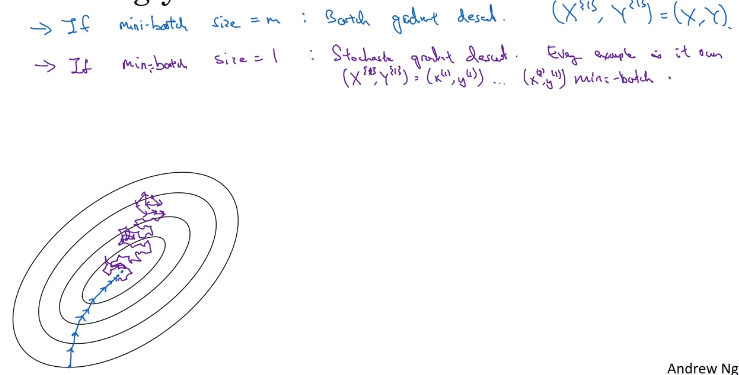 → If mini-batch size = m : Batch gradient descent. (X^{1}, Y^{1}) = (X, Y).
→ If mini-batch size = 1 : Stochastic gradient descent. Every example is it own
(X^{1}, Y^{1}) = (x^(1), y^(1)) ... (x^(2), y^(2)) mini-batch.
Andrew Ng